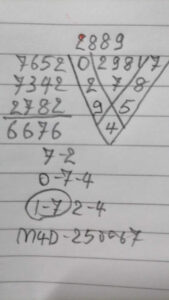 2889
7652 0 2 9 8 1/7
7342 2 7 8
2782 9 5
6676 4
7-2
0-7-4
1-7 2-4